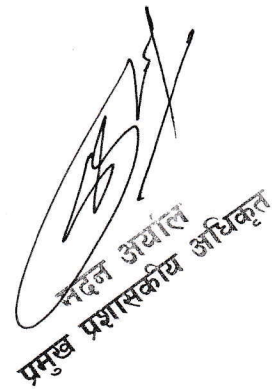 मदन अर्याल
प्रमुख प्रशासकीय अधिकृत